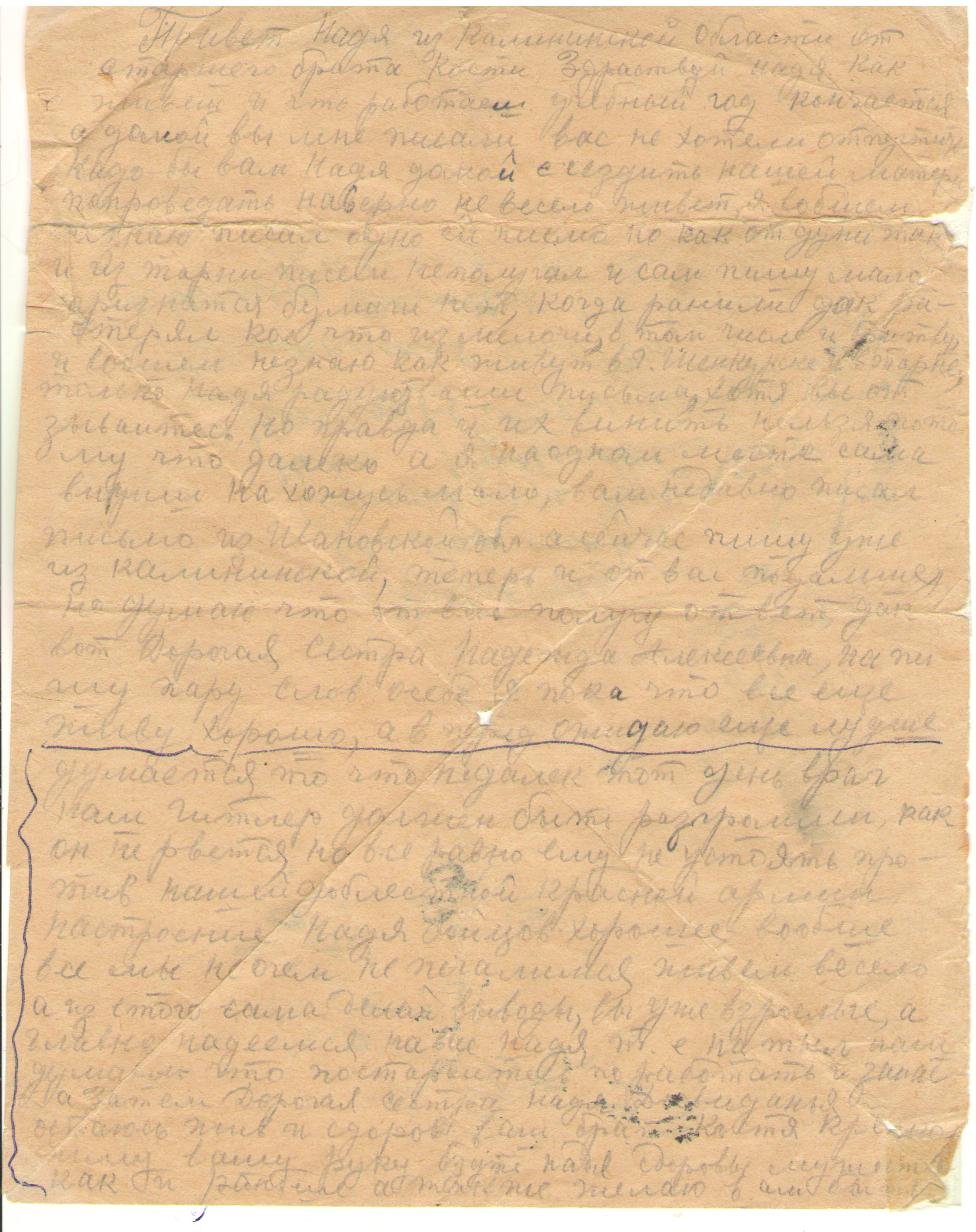 Привет Надя из Калининской области от
старшего брата Кости Здраствуй надя как
живеш и что работаеш учебный год кончается
а домой вы мне писали вас не хотели отпустить
надо бы вам Надя домой сьездить нашей матери
попроведать наверно не весело живет, я вобщем
незнаю писал одно ей писмо но как от души так
и из тарни писем неполучал и сам пишу мало
признатся бумаги нет, когда ранили дак ра-
стерял кое что из мелочи, в том числе и бритву,
и вобщем незнаю как живут в г. Шенкурске и в тарне,
только Надя радуют ваши письма, хотя вы от
зываитесь, но правда и их винить нельзя пото
му что далеко а я наодном месте сама
видиш нахожусь мало, вам недавно писал
письмо из Ивановской обл. а сейчас пишу уже
из калининской, теперь и от вас подалше,
но думаю что от вас получу ответ, дак
вот Дорогая Сестра Надежда Алексеевна, напи
шу пару слов осебе я пока что все еще
живу хорошо, а в пред ожидаю еще лучше
думается то что недалек тот день враг
нам Гитлер должен быть разгромлен, как
он не рвется но все равно ему не устоять про-
тив нашей доблестной красной армии
настроение Надя бойцов хорошее вообще
все мы не очем не печалимся живем весело
а из етого сама делай выводы, вы уже взрослые, а
главно надеемся на вас Надя т. е на тыл наш
думаем что постараитесь поработать и
а Затем Дорогая сестра Надя До свиданья
остаюсь жив и здоров ваш брат Костя крепко
жму вашу руку будте надя здоровы
как и раньше а также желаю вам